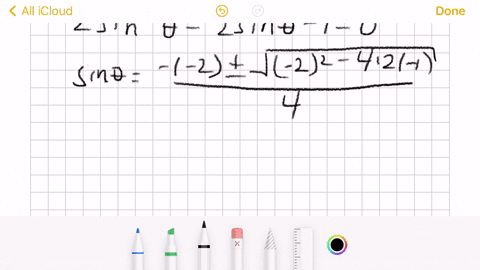 All iCloud
Done
2 sin θ - 2 sin θ - 1 = 0
sinθ = -(-2) ± √(-2)² - 4·2(-1)
4